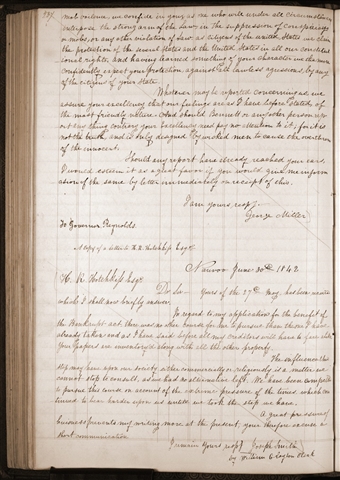 mob violence, we confide in you, as one who will under all circumstances
interpose the strong arm of the Law, in the suppression of conspiracys
or mobs, or any other violation of Law. as citizens of the united States we claim
the protection of the several States and the United States in all our constitu-
ional rights, and having learned something of your character we the more
confidently expect your protection against all lawless agressions, by any
of the citizens of your State.
Whatever may be reported concerning us, we
assure your excellency that our feelings are as I have before stated, of
the most friendly nature. And should Bennett or any other person rep-
ort any thing contrary your Excellency need pay no attention to it; for it is
not the truth, and is only designed by wicked men to cause the overthrow
of the innocent.
Should any report have already reached your ears,
I would esteem it as a great favor if you would give me inform
ation of the same by letter immediately on receipt of this.
I am yours, respy
George Miller
To Governor Reynolds
A copy of a letter to H. R. Hotchkiss Esqr.
Nauvoo June 30th 1842
H. R. Hotchkiss Esqr.
Dr. Sir— Yours of the 27th May has been received
which I shall now briefly answer.
In regard to my application for the benefit of
the Bankrupt act, there was no other course for me to pursue than those I have
already taken and as I have said before all my creditors will have to fare alike.
Your papers are inventoried along with all the other property.
The influence this
step may have upon our society either commercially or religiously is a matter we
cannot stop to consult, as we had no alternative left. We have been compelled
to pursue this course on account of the extreme pressure of the times which con-
tinued to bear harder upon us until we took the step we have.
A great press of
business prevents my writing more at the present; you'll therefore excuse a
short communication.
I remain yours respy Joseph Smith
by William Clayton Clerk